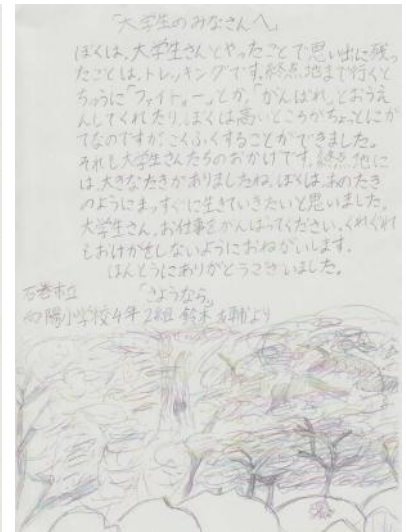 「大学生のみなさんへ」
ぼくは、大学生さんとやったことで思い出に残っ
たことは、トレッキングです。終点地まで行くと
ちゅうに「ファイトォー」とか、「がんばれ」とおうえ
んしてくれたり、ぼくは高いところがちょっとにが
てなのですが、こくふくすることができました。
それも大学生さんたちのおかげです。終点地に
は、大きなたきがありましたね、ぼくは、あのたき
のようにまっすぐに生きていきたいと思いました。
大学生さん、お仕事をがんばってください。くれぐれ
もおけがをしないようにおねがいします。
ほんとうにありがとうございました。
「さようなら。」
石巻市立
向陽小学校4年2組 鈴木 より